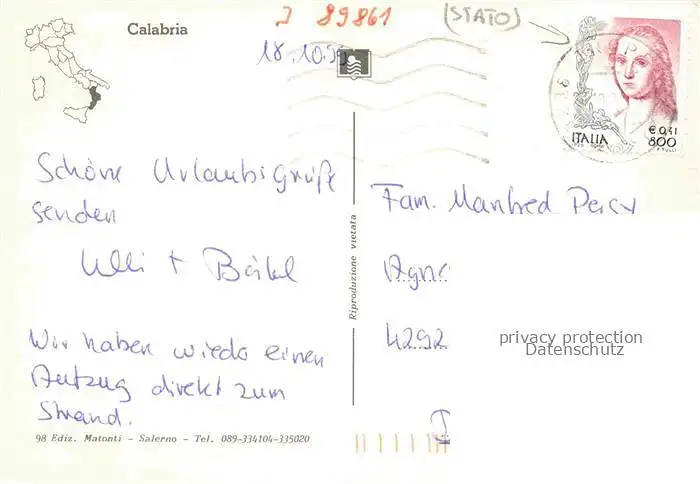 J 89861
(STATO)
Calabria
18.10.99
ITALIA
€ 0,41
800
Schöne Urlaubsgrüße
senden
Ulli + Bärbel
Wir haben wieder einen
Aufzug direkt zum
Strand.
98 Ediz. Matonti - Salerno - Tel. 089-334104-335020
Riproduzione vietata
Fam. Manfred
4292
privacy protection
Datenschutz